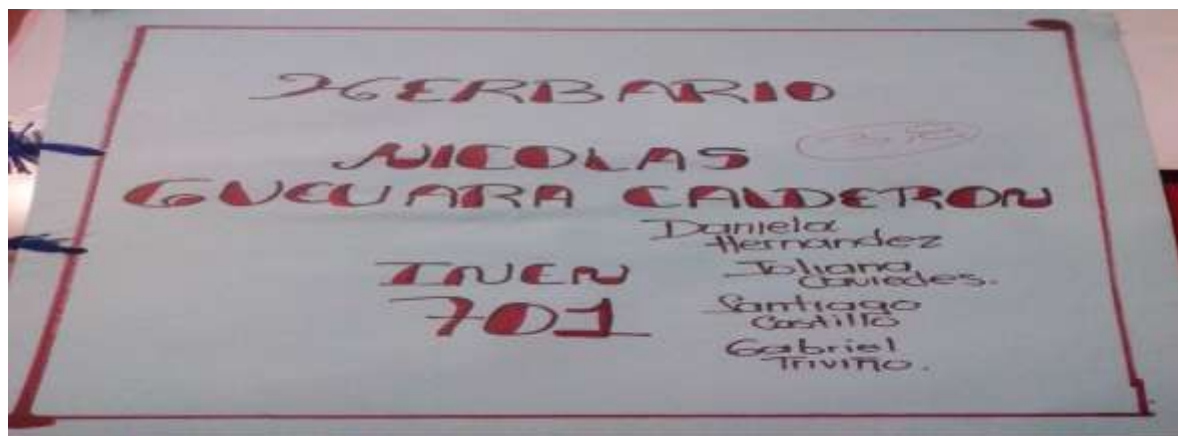 HERBARIO
NICOLAS
GUEVARA CALDERON
Daniela
Hernandez
INEN
701
Joliana
Caviedes.
Santiago
Castillo
Gabriel
Triviño.